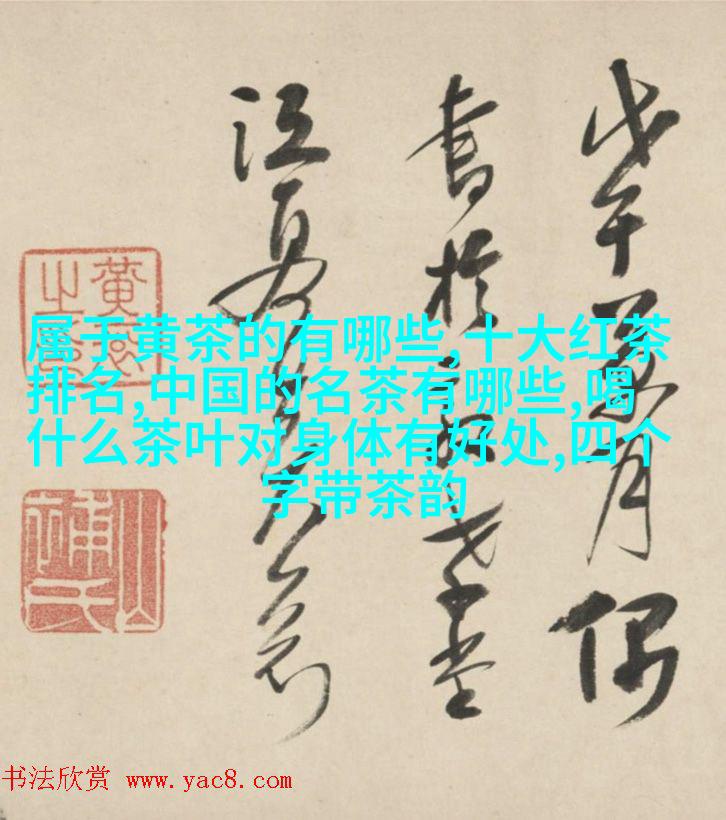 戊午月偶
書於堂
江夏
属于黄茶的有哪些,十大红茶
排名,中国的名茶有哪些,喝
什么茶叶对身体有好处,四个
字带茶韵
书法欣赏 www.yac8.com